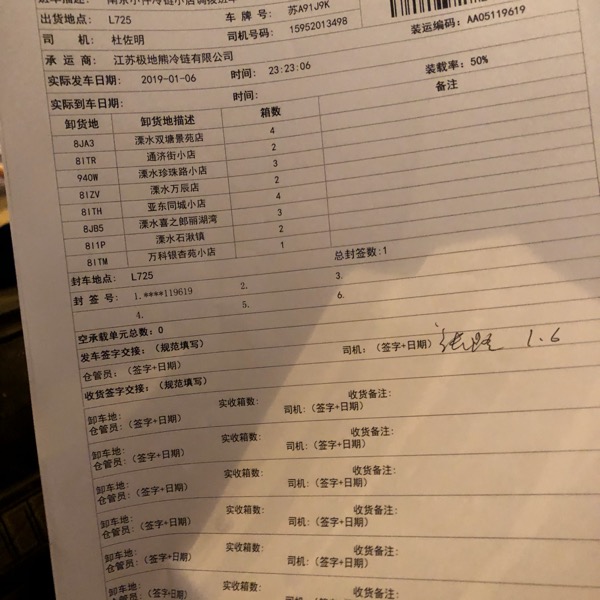 出货地点: L725 车 牌 号: 苏A91J9K
司 机: 杜佐明 司机号码: 15952013498 装运编码: AA05119619
承 运 商: 江苏极地熊冷链有限公司
实际发车日期: 2019-01-06 时间: 23:23:06 装载率: 50%
实际到车日期: 时间:
卸货地 卸货地描述 箱数 备注
8JA3 溧水双塘景苑店 4
8ITR 通济街小店 2
940W 溧水珍珠路小店 3
8IZV 溧水万辰店 2
8ITH 亚东同城小店 4
8JB5 溧水喜之郎丽湖湾 3
8I1P 溧水石湫镇 2
8ITM 万科银杏苑小店 1
封车地点: L725 总封签数:1
封 签 号: 1.****119619 2. 3.
4. 5. 6.
空承载单元总数: 0
发车签字交接: (规范填写)
仓管员: (签字+日期) 司机: (签字+日期) 1.6
收货签字交接: (规范填写)
卸车地: 实收箱数: 收货备注:
仓管员: (签字+日期) 司机: (签字+日期)
卸车地: 实收箱数: 收货备注:
仓管员: (签字+日期) 司机: (签字+日期)
卸车地: 实收箱数: 收货备注:
仓管员: (签字+日期) 司机: (签字+日期)
卸车地: 实收箱数: 收货备注:
仓管员: (签字+日期) 司机: (签字+日期)
卸车地: 实收箱数: 收货备注:
仓管员: (签字+日期) 司机: (签字+日期)
卸车地: 实收箱数: 收货备注:
仓管员: (签字+日期) 司机: (签字+日期)